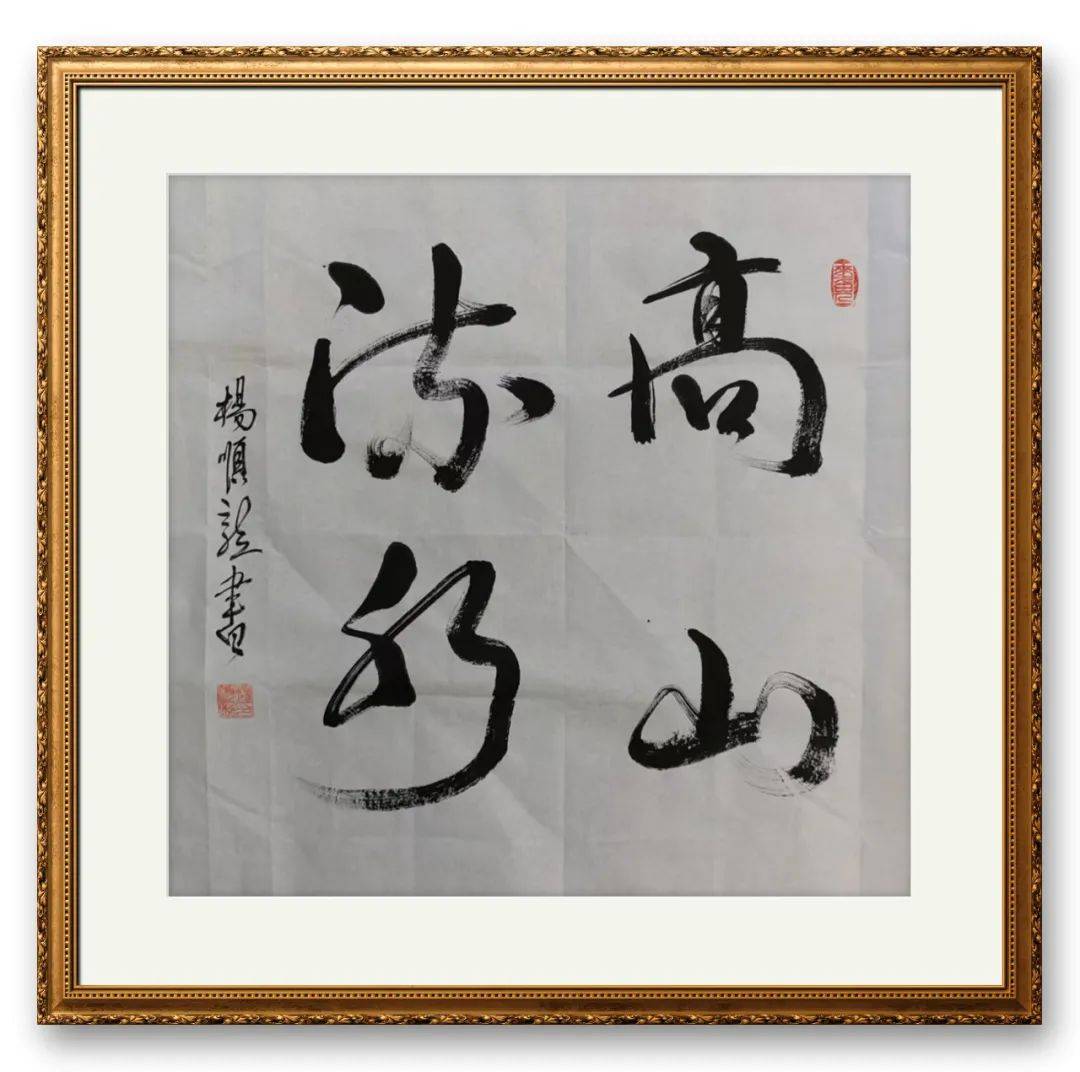 高山
流水
楊順龍書